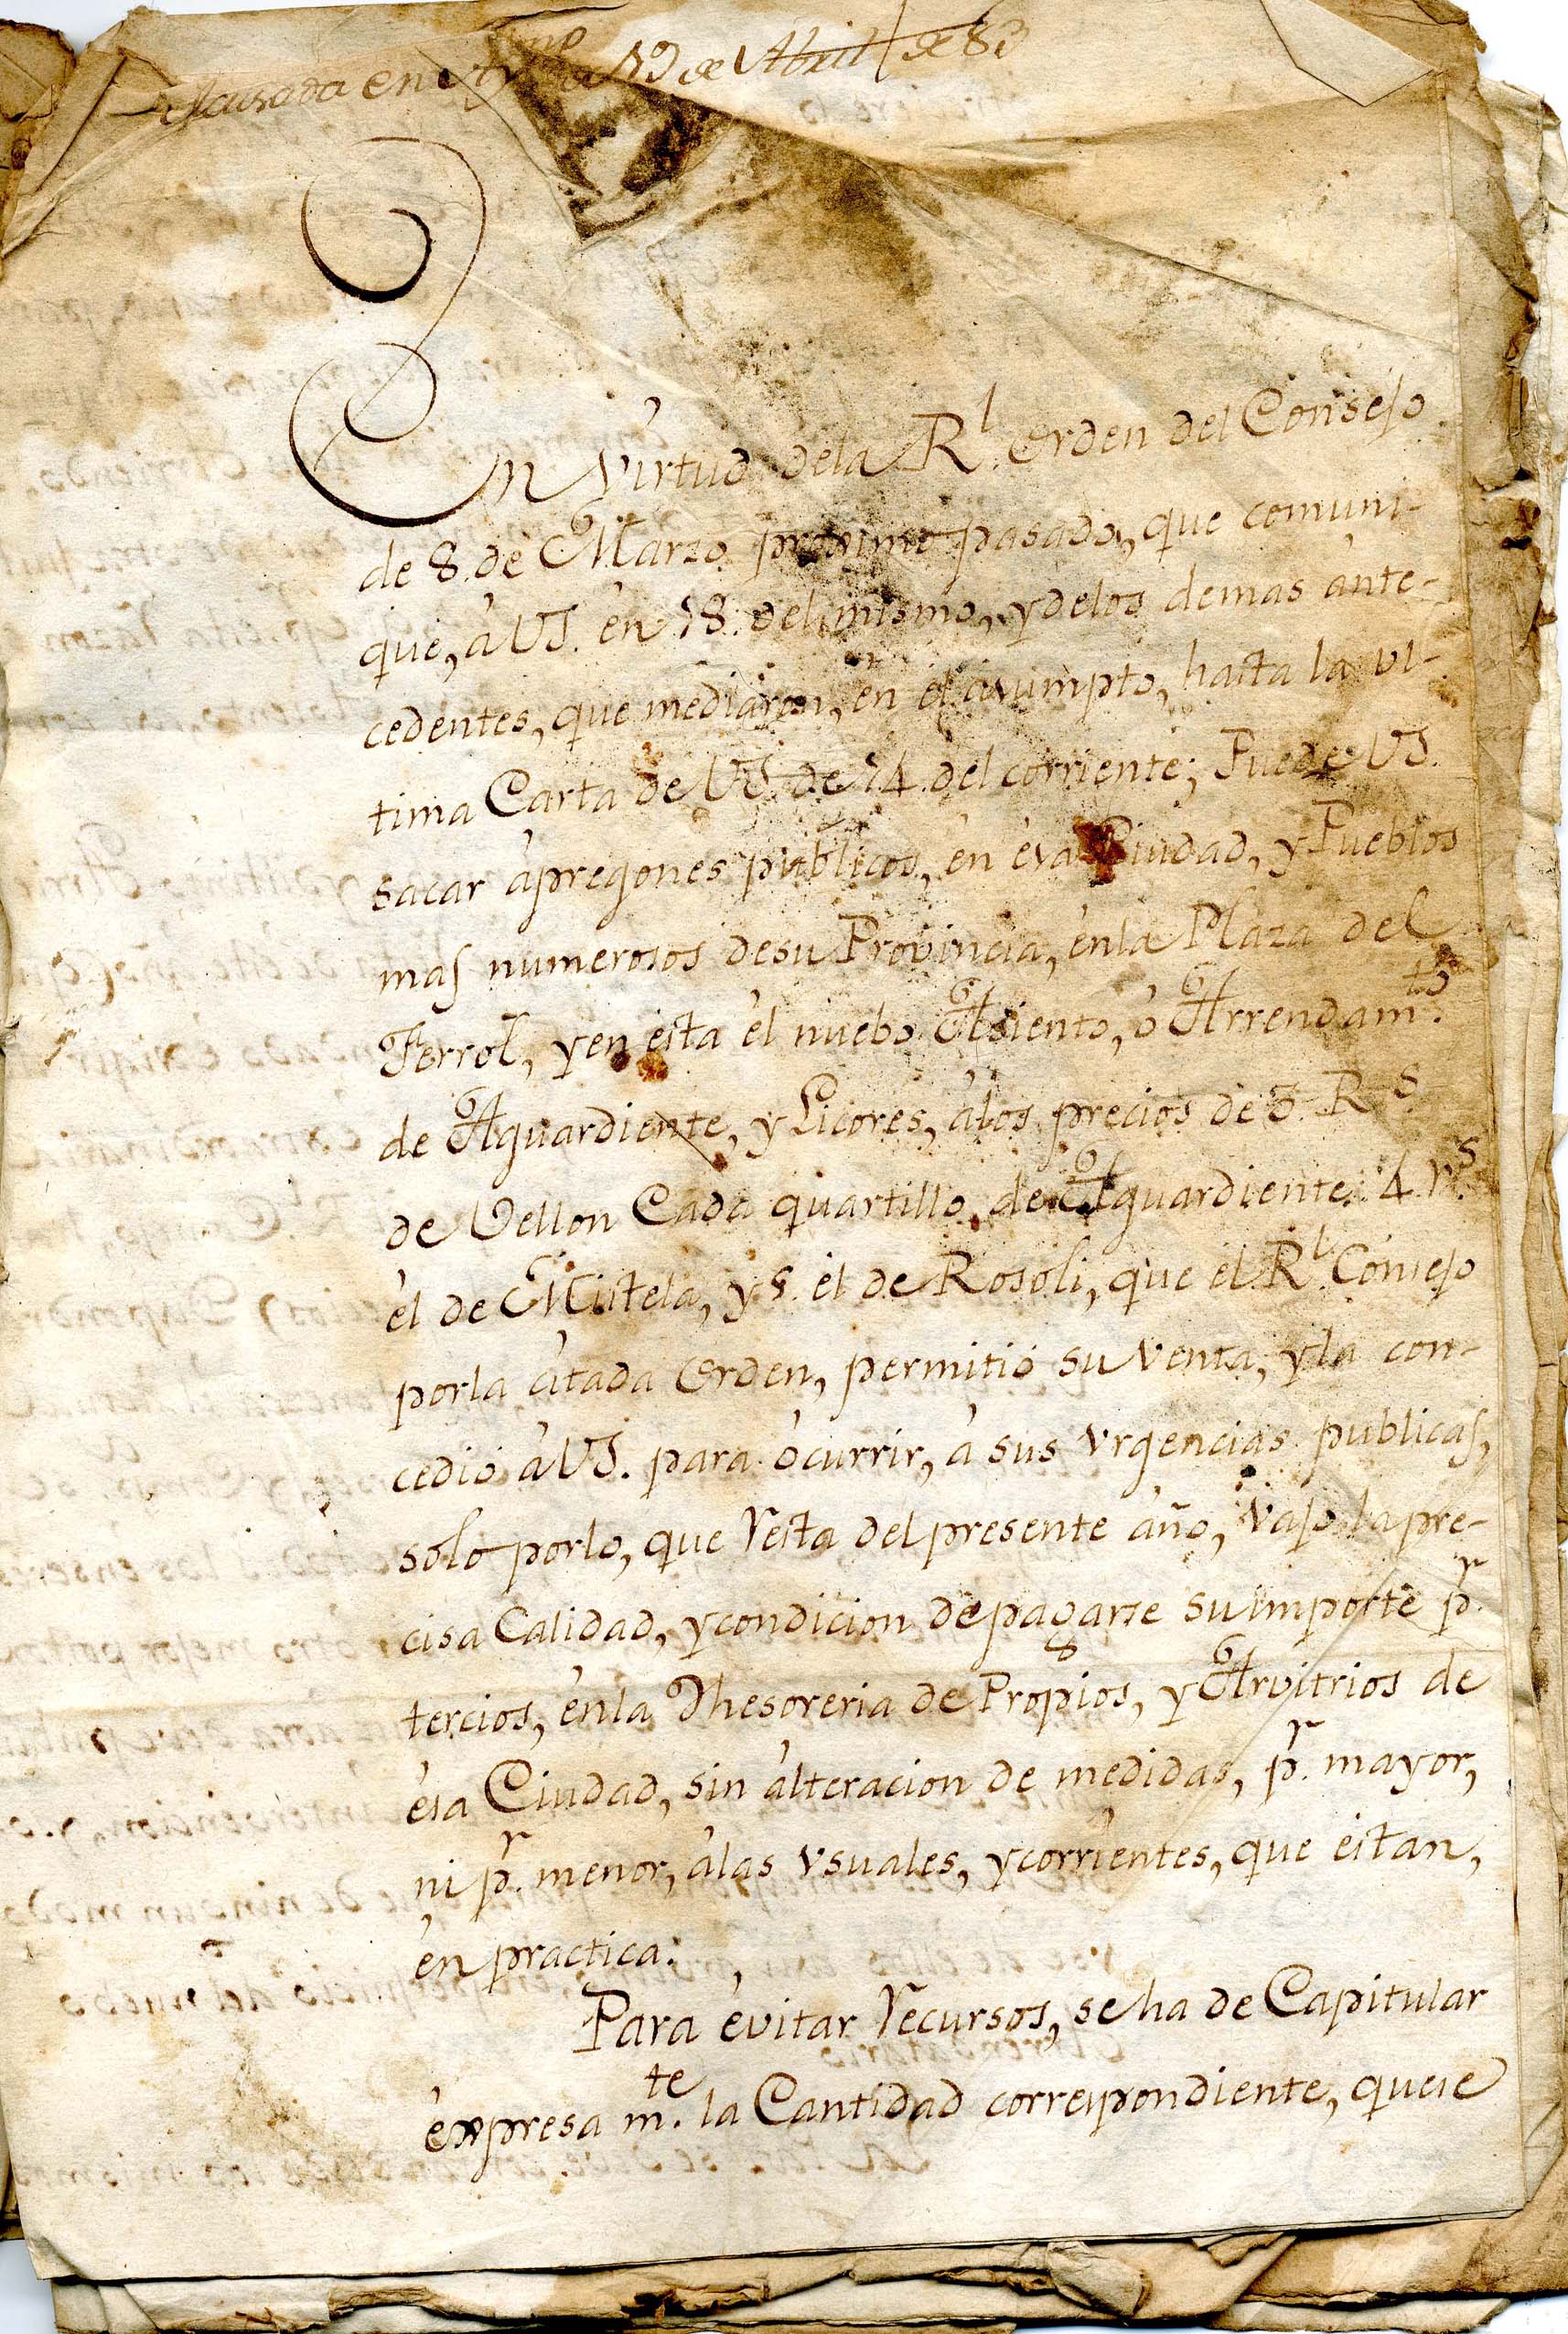 de 19 de Abril de 83
En virtud dela Rl. Orden del Consejo
de 8. de Marzo proximo pasado, que comuni-
què, à VS. en 18. del mismo, y delos demas ànte-
cedentes, que mediaron, en el asumpto, hasta la ul-
tima Carta de VS. de 14. del corriente; Puede VS.
sacar àpregones publicos, en èsa Ciudad, y Pueblos
mas numerosos desu Provincia, ènla Plaza del
Ferrol, y en esta el nuebo Asiento, ò Arrendamto.
de Aguardiente, y Licores, àlos precios de 3. Rs.
de Vellon Cada quartillo de Aguardiente: 4. rs.
èl de Mistela, y 5. èl de Rosoli, que el Rl. Consejo
porla citada Orden, permitiò su venta, y la con-
cediò à VS. para òcurrir, à sus vrgencias publicas,
solo porlo, que resta del presente año, vajo la pre-
cisa Calidad, y condicion de pagarse su importe pr.
tercios, ènla Thesoreria de Propios, y Arvitrios de
èsa Ciudad, sin àlteracion de medidas, pr. mayor,
ni pr. menor, àlas vsuales, y corrientes, que estan,
èn practica.
Para èvitar recursos, se ha de Capitular
èxpresa mte. la Cantidad correspondiente, que se